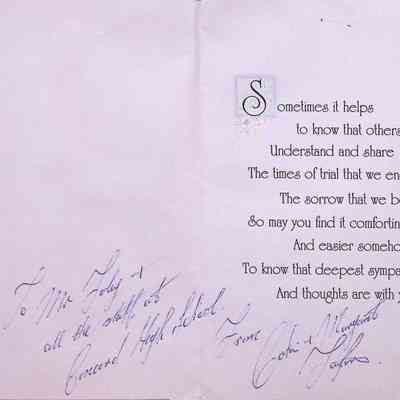 Sometimes it helps
to know that others
Understand and share
The times of trial that we en
The sorrow that we b
So may you find it comfortin
And easier someho
To know that deepest sympa
And thoughts are with y
To Mr Foley +
all the staff at
Concord High School.
From Colin + Margaret